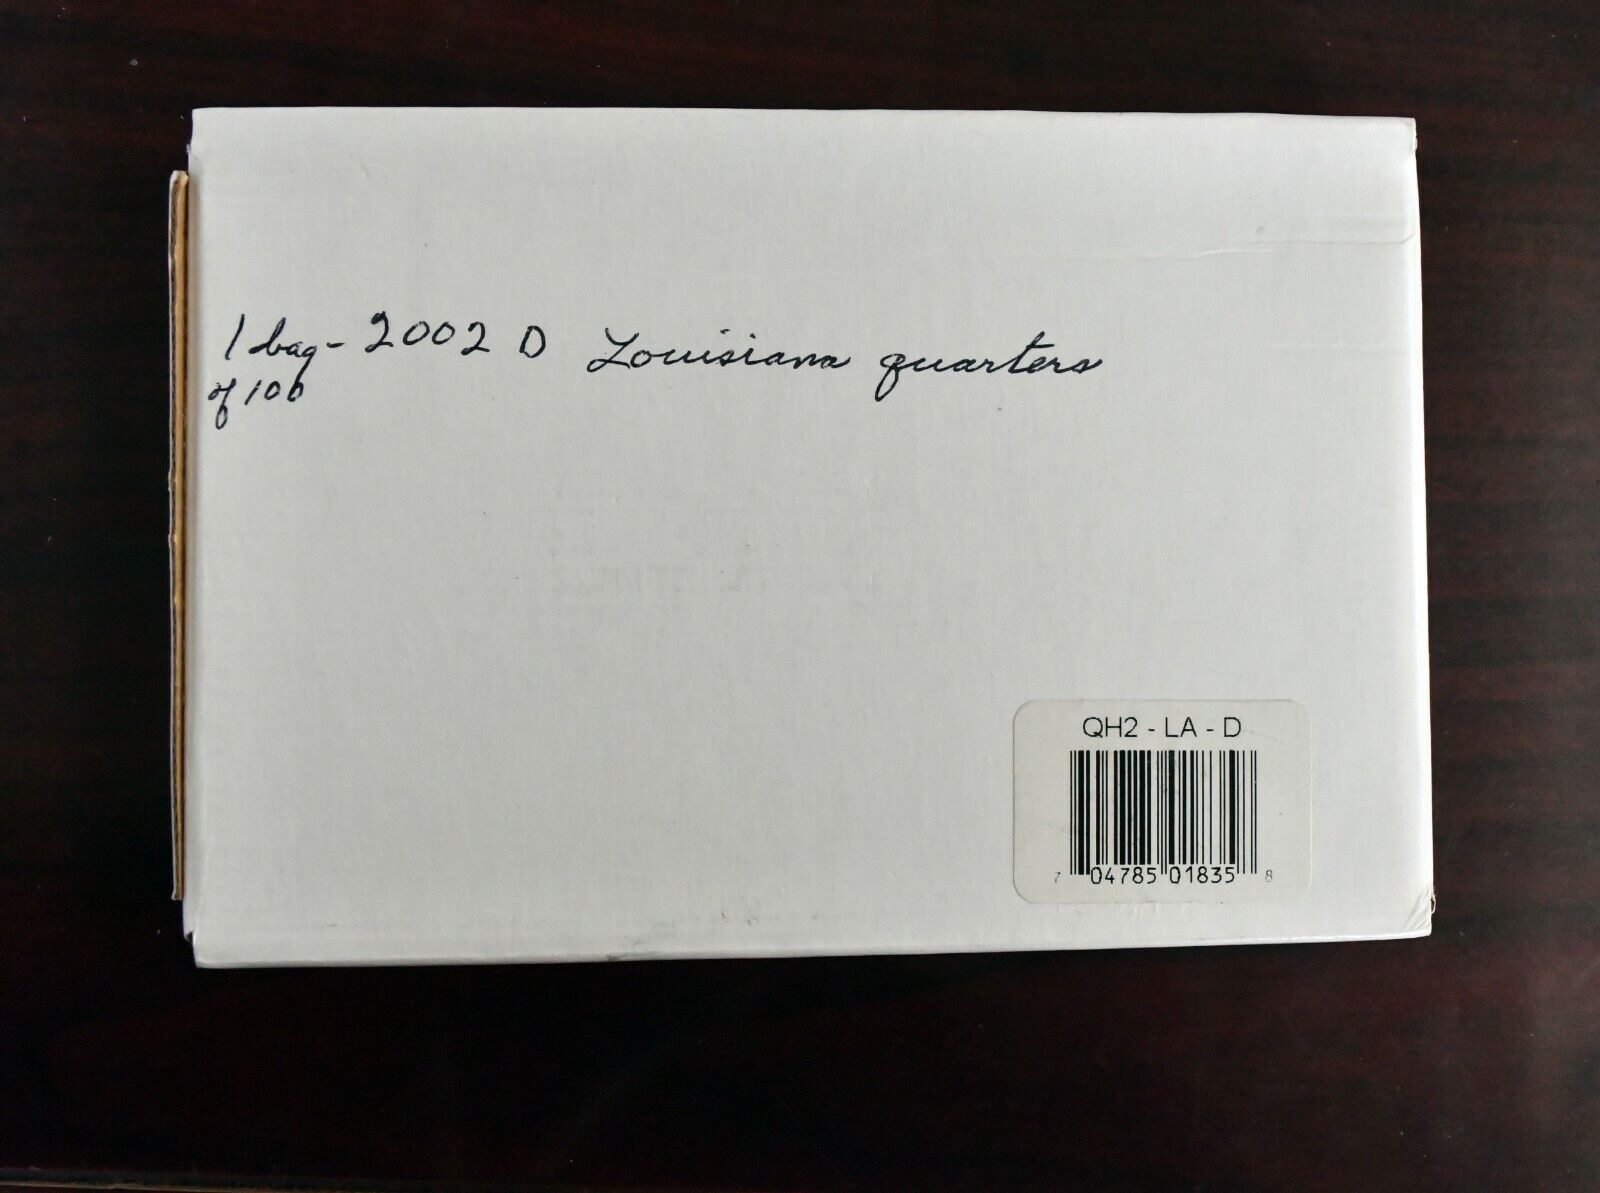 1 bag - 2002 D Louisiana quarters
of 100
QH2 - LA - D
7 04785 01835 8